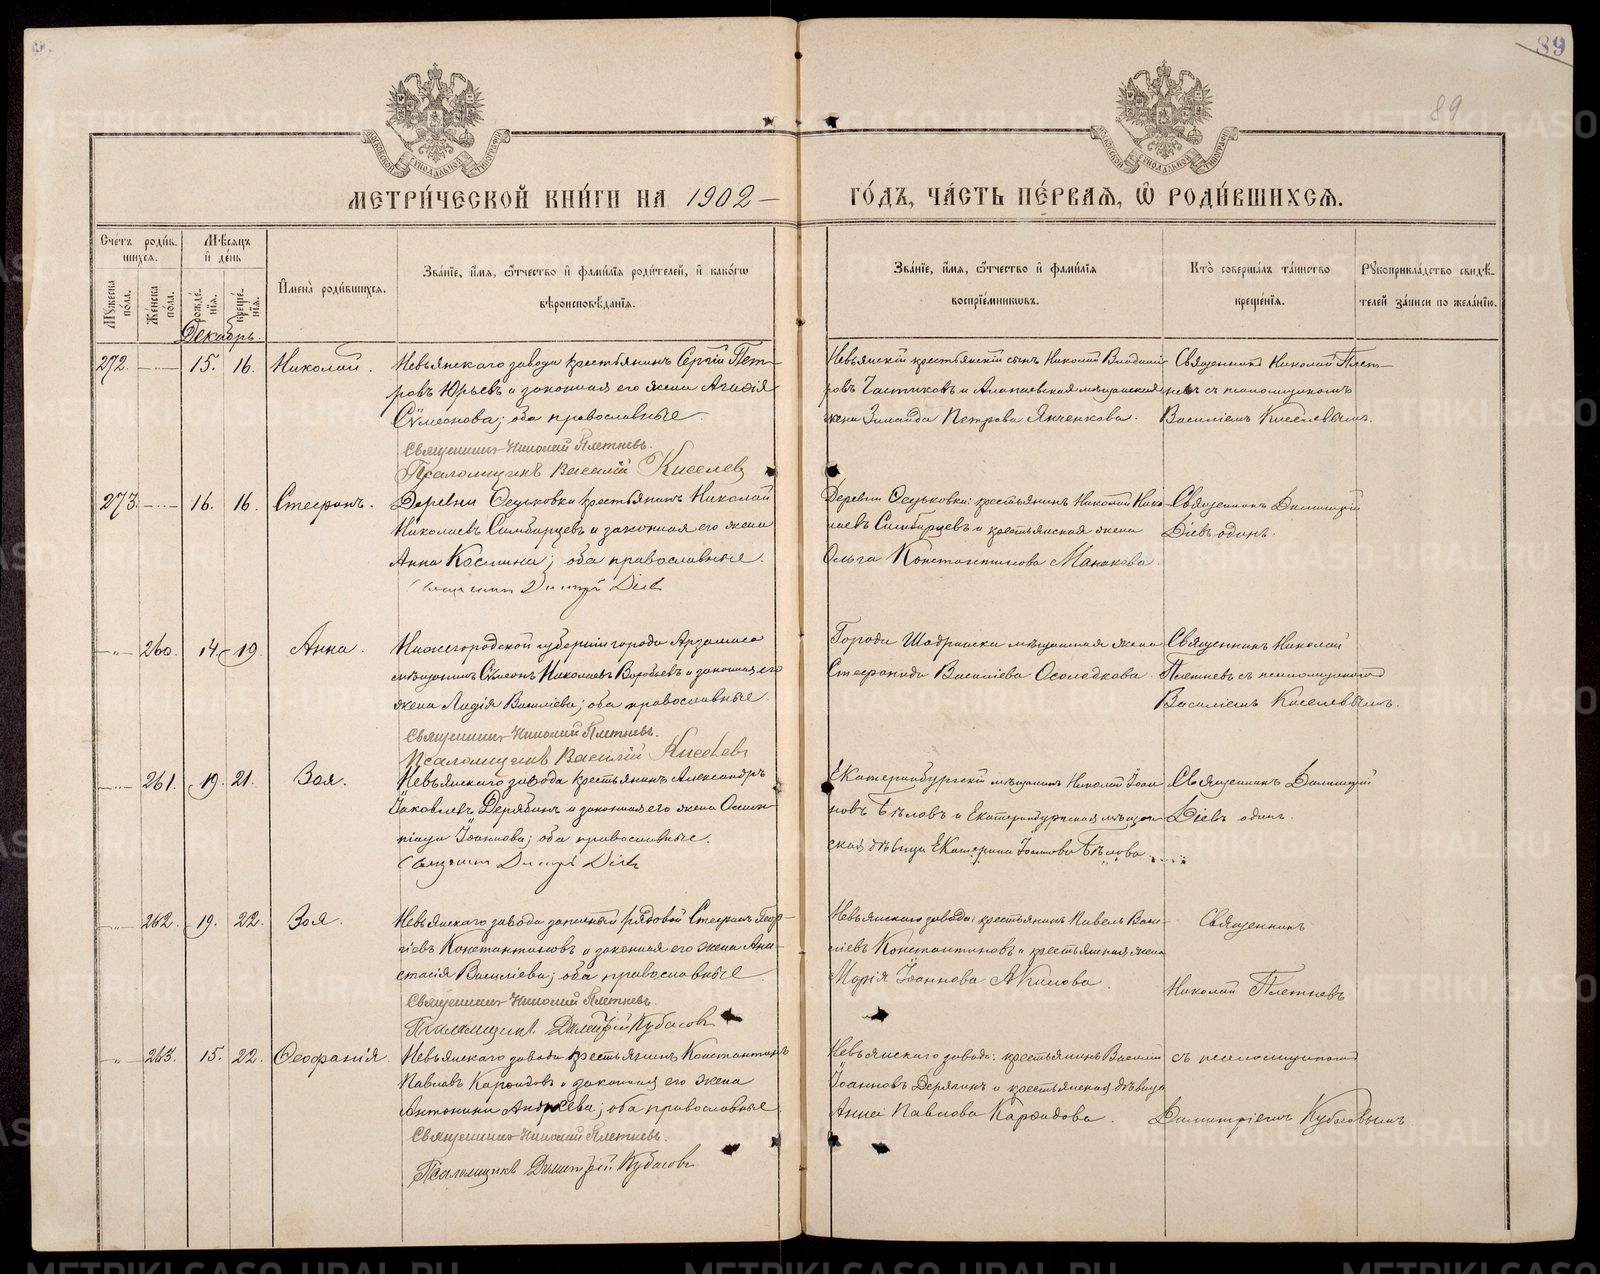 89
89
МЕТРИ́ЧЕСКОЙ КНИ́ГИ НА 1902 –
ГО́ДЪ, ЧА́СТЬ ПЕ́РВАЯ, Ѽ РОДИ́ВШИХСЯ.
Сче́тъ роди́в-
шихся.
Му́жеска по́ла.
Же́нска по́ла.
Мѣ́сяцъ
и҆ де́нь
рожде́-
нїя.
креще́-
нїя.
Декабрь.
И҆мена̀ роди́вшихся.
Зва́нїе, и҆́мя, ѻ҆́тчество и҆ фами́лїя роди́телей, и҆ како́гѡ
вѣроисповѣ́данїя.
Зва́нїе, и҆́мя, ѻ҆́тчество и҆ фами́лїя
воспрїе́мникѡвъ.
Кто̀ соверша́лъ та́инство
креще́нїя.
Рꙋкоприкла́дство свидѣ́-
телей за́писи по жела́нїю.
272. 15. 16. Николай.
Невьянскаго завода крестьянинъ Сергій Пет-
ровъ Юрьевъ и законная его жена Агафія
Сѵмеонова; оба православные.
Священникъ Николай Плетневъ.
Псаломщикъ Василій Киселев
Невьянскій крестьянскій сынъ Николай Владими-
ровъ Частиковъ и Алапаевская мѣщанская
жена Зинаида Петрова Янченкова.
Священникъ Николай Плет-
невъ съ псаломщикомъ
Василіемъ Киселевымъ.
273. 16. 16. Стефанъ.
Деревни Осуьковки крестьянинъ Николай
Николаевъ Симбирцевъ и законная его жена
Анна Космина; оба православные.
Священникъ Димитрій Діевъ
Деревни крестьянинъ Николай Нико-
лаевъ Симбирцевъ и крестьянская жена
Ольга Константинова Манакова.
Священникъ Димитрій
Діевъ одинъ.
260. 14. 19. Анна.
Нижегородской губерніи города Арзамаса
мѣщанинъ Сѵмеонъ Николаевъ Воробьевъ и законная его
жена Лидія Василіева; оба православные.
Священникъ Николай Плетневъ.
Псаломщикъ Василій Киселев
Города Шадринска мѣщанская жена
Стефанида Василіева Осолодкова.
Священникъ Николай
Плетневъ съ псаломщикомъ
Василіемъ Киселевымъ.
261. 19. 21. Зоя.
Невьянскаго завода крестьянинъ Александръ
Іаковлевъ Дерябинъ и законная его жена Олим-
піада Іоаннова; оба православные.
Священникъ Димитрій Діевъ
Екатеринбургскій мѣщанинъ Николай Іоан-
новъ Бѣловъ и Екатеринбургская мѣщан-
ская дѣвица Екатерина Іоаннова Бѣлова.
Священникъ Димитрій
Діевъ одинъ.
262. 19. 22. Зоя.
Невьянскаго завода запасный рядовой Стефанъ Геор-
гіевъ Константиновъ и законная его жена Ана-
стасія Василіева; оба православные.
Священникъ Николай Плетневъ.
Псаломщикъ Димитрій Кубасовъ
Невьянскаго завода: крестьянинъ Павелъ Васи-
ліевъ Константиновъ и крестьянская жена
Марія Іоаннова Акилова.
Священникъ
Николай Плетневъ
263. 15. 22. Ѳеофанія.
Невьянскаго завода крестьянинъ Константинъ
Павловъ Карфидовъ и законная его жена
Антонина Андреева; оба православные
Священникъ Николай Плетневъ.
Псаломщикъ Димитрій Кубасовъ
Невьянскаго завода: крестьянинъ Василій
Іоанновъ Дерягинъ и крестьянская дѣвица
Анна Павлова Карфидова.
съ псаломщикомъ
Димитріемъ Кубасовымъ